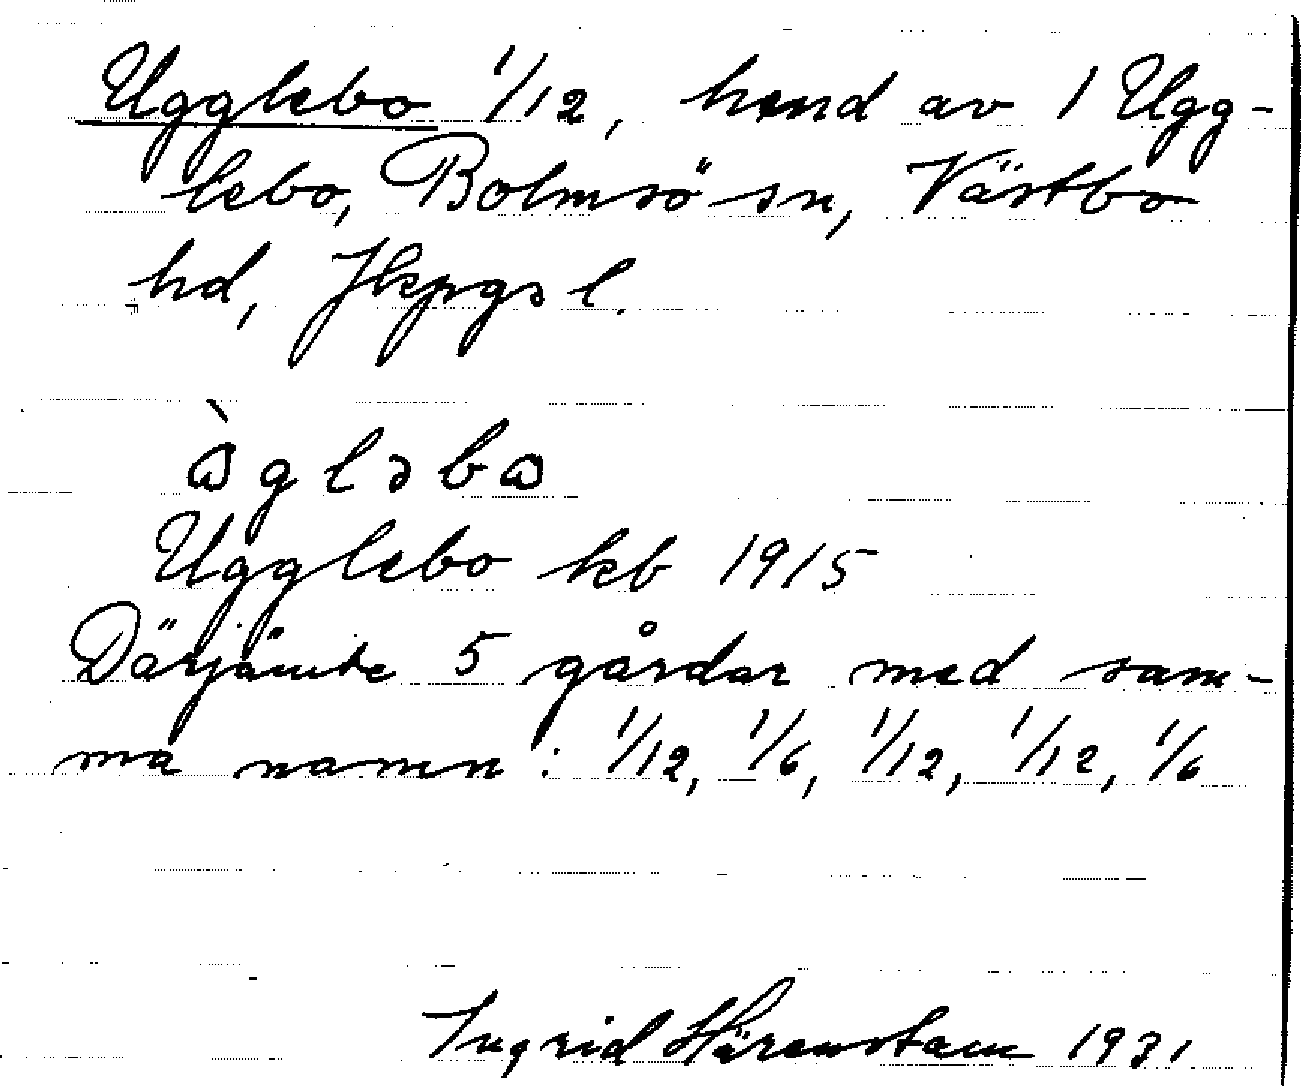 Ugglebo 1/12, hmd av 1 Ugg-
lebo, Bolmsö sn, Västbo
hd, Jkpgs l.
ὰgləbɷ
Ugglebo kb 1915
Därjämte 5 gårdar med sam-
ma namn: 1/12, 1/6, 1/12, 1/12, 1/6
Ingrid Härenstam 1931